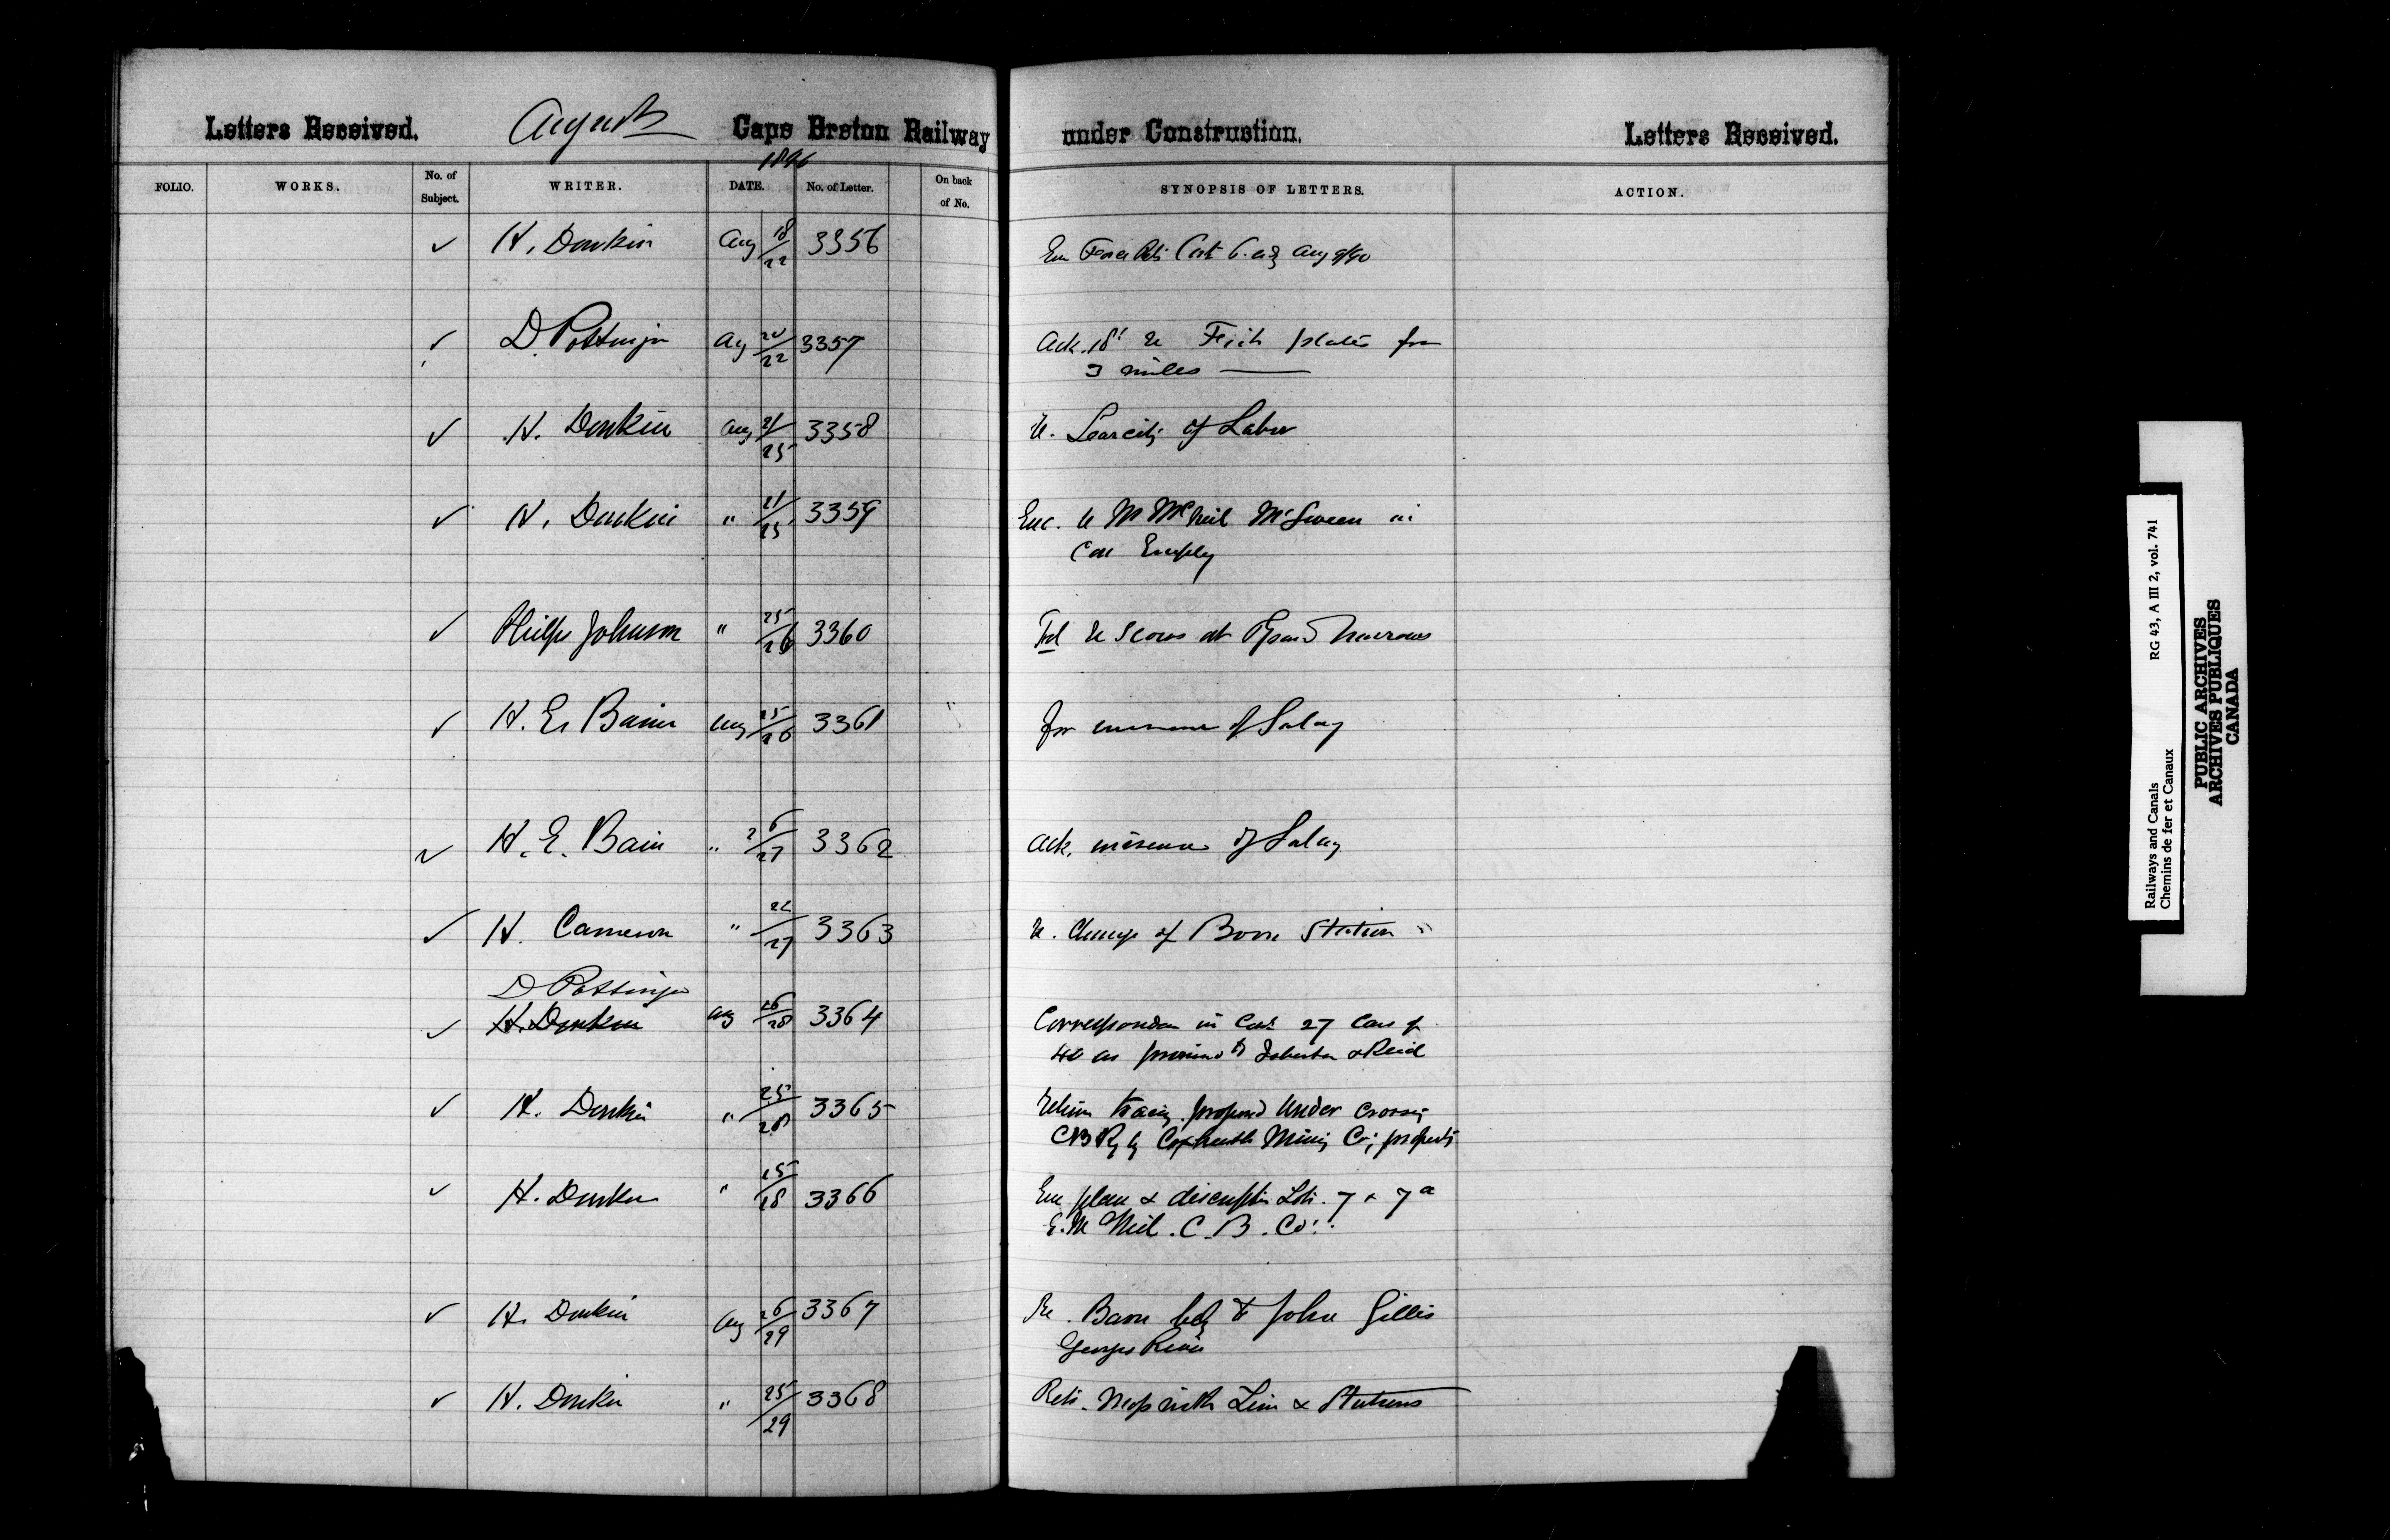 Letters Received. August Cape Breton Railway under Construction. Letters Received.
FOLIO. WORKS. No. of Subject. WRITER. DATE. No. of Letter. On back of No. SYNOPSIS OF LETTERS. ACTION.
H. Donkin Aug 18/22 3356
D. Pottinger Ag 20/22 3357 Ack. 18' re Fish plates for
3 miles
H. Donkin Aug 21/25 3358 re. Scarcity of Labor
H. Donkin " 21/25 3359 Enc. re McNeil McSween in
Employ
Phelps Johnson " 25/26 3360 Tel re Scows at Grand Narrows
H. E. Bain Aug 25/26 3361 for increase of Salary
H. E. Bain " 26/27 3362 Ack. increase of Salary
H. Cameron " 22/27 3363 re. Change of Station
D Pottinger
H. Donkin Aug 26/28 3364 27 Cars of
40 as & Reid
H. Donkin " 25/28 3365 Return tracing proposed Under Crossing
CB Ry by Coxheath Mining Co's property
H. Donkin " 25/28 3366 Enc plan & description Lots. 7 & 7a
E. McNeil. C. B. Co.
H. Donkin Aug 26/29 3367 Re. Barn belg to John Gillis
Georges River
H. Donkin " 25/29 3368 Retg. Map with Line & Stations
Railways and Canals RG 43, A III 2, vol. 741
Chemins de fer et Canaux
PUBLIC ARCHIVES
ARCHIVES PUBLIQUES
CANADA